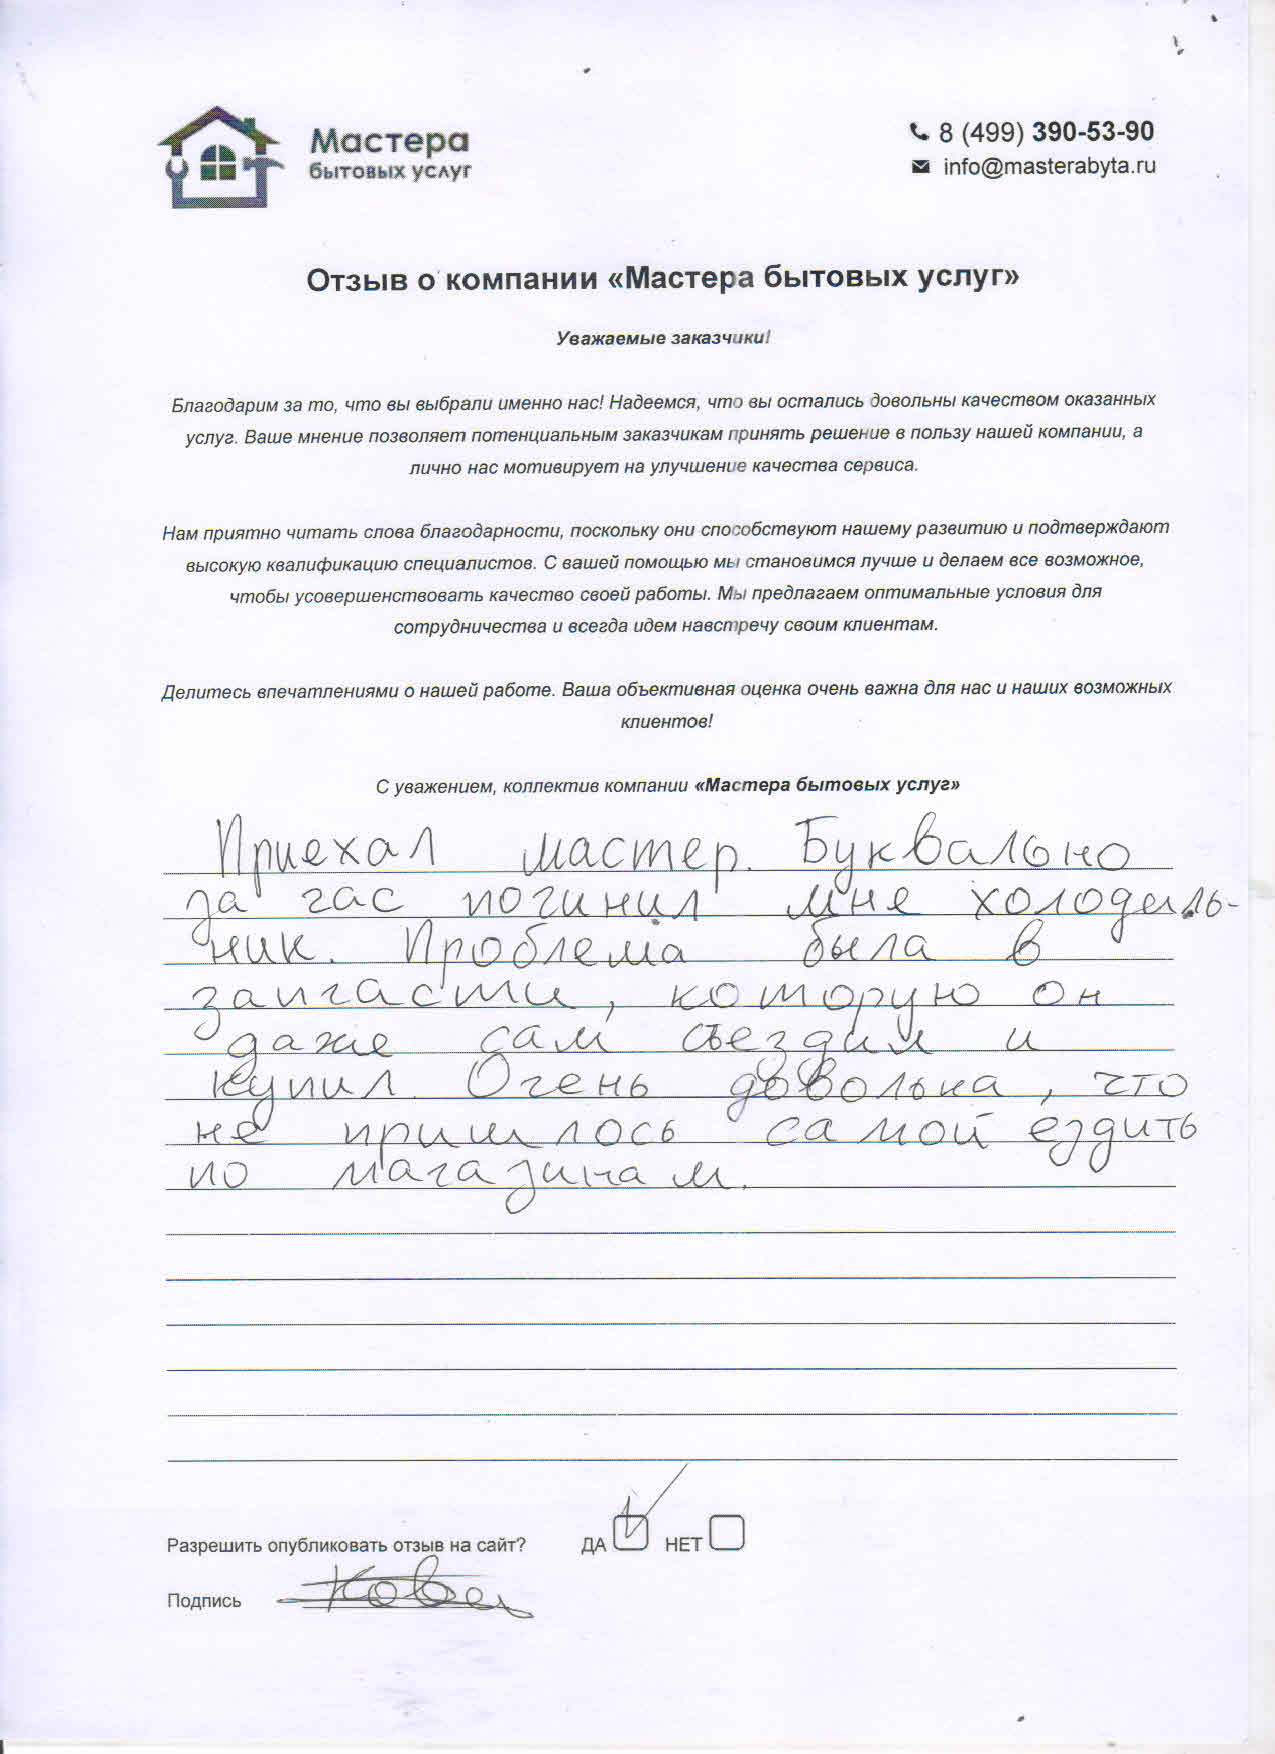 Мастера
бытовых услуг
8 (499) 390-53-90
info@masterabyta.ru
Отзыв о компании «Мастера бытовых услуг»
Уважаемые заказчики!
Благодарим за то, что вы выбрали именно нас! Надеемся, что вы остались довольны качеством оказанных
услуг. Ваше мнение позволяет потенциальным заказчикам принять решение в пользу нашей компании, а
лично нас мотивирует на улучшение качества сервиса.
Нам приятно читать слова благодарности, поскольку они способствуют нашему развитию и подтверждают
высокую квалификацию специалистов. С вашей помощью мы становимся лучше и делаем все возможное,
чтобы усовершенствовать качество своей работы. Мы предлагаем оптимальные условия для
сотрудничества и всегда идем навстречу своим клиентам.
Делитесь впечатлениями о нашей работе. Ваша объективная оценка очень важна для нас и наших возможных
клиентов!
С уважением, коллектив компании «Мастера бытовых услуг»
Приехал мастер. Буквально
за час починил мне холодиль-
ник. Проблема была в
запчасти, которую он
даже сам съездил и
купил. Очень довольна, что
не пришлось самой ездить
по магазинам.
Разрешить опубликовать отзыв на сайт? ДА НЕТ
Подпись